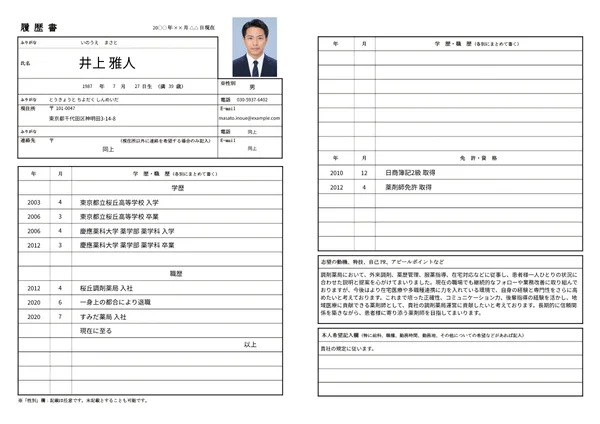 履歴書
20○○年××月△△日現在
ふりがな いのうえ まさと
氏名 井上 雅人
1987 年 7 月 27 日生 (満 39 歳)
※性別 男
ふりがな とうきょうと ちよだく しんめいだ
電話 030-5937-6402
現住所 〒101-0047
E-mail
東京都千代田区神明田3-14-8
masato.inoue@example.com
ふりがな
電話 同上
連絡先 〒 (現住所以外に連絡を希望する場合のみ記入)
E-mail
同上
同上
年 月 学 歴・職 歴 (各別にまとめて書く)
学歴
2003 4 東京都立桜丘高等学校 入学
2006 3 東京都立桜丘高等学校 卒業
2006 4 慶應薬科大学 薬学部 薬学科 入学
2012 3 慶應薬科大学 薬学部 薬学科 卒業
職歴
2012 4 桜丘調剤薬局 入社
2020 6 一身上の都合により退職
2020 7 すみだ薬局 入社
現在に至る
以上
※「性別」欄：記載は任意です。未記載とすることも可能です。
年 月 学 歴・職 歴 (各別にまとめて書く)
年 月 免 許・資 格
2010 12 日商簿記2級 取得
2012 4 薬剤師免許 取得
志望の動機、特技、自己PR、アピールポイントなど
調剤薬局において、外来調剤、薬歴管理、服薬指導、在宅対応などに従事し、患者様一人ひとりの状況に
合わせた説明と提案を心がけてまいりました。現在の職場でも継続的なフォローや業務改善に取り組んで
おりますが、今後はより在宅医療や多職種連携に力を入れている環境で、自身の経験と専門性をさらに高
めたいと考えております。これまで培った正確性、コミュニケーション力、後輩指導の経験を活かし、地
域医療に貢献できる薬剤師として、貴社の調剤薬局運営に貢献したいと考えております。長期的に信頼関
係を築きながら、患者様に寄り添う薬剤師を目指してまいります。
本人希望記入欄 (特に給料、職種、勤務時間、勤務地、その他についての希望などがあれば記入)
貴社の規定に従います。